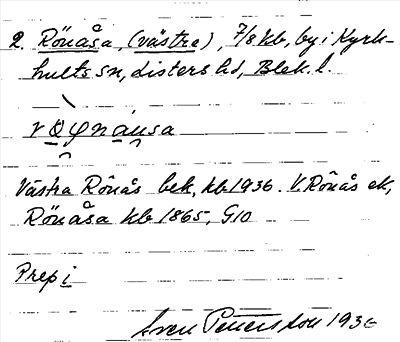 2. Rönåsa, (västra), 7/8 kb, by i Kyrk-
hults sn, Listers hd, Blek. l.
Västra Rönås bek, kb 1936. V. Rönås ek,
Rönåsa kb 1865, G10
Prep i
Sven Petersson 1936